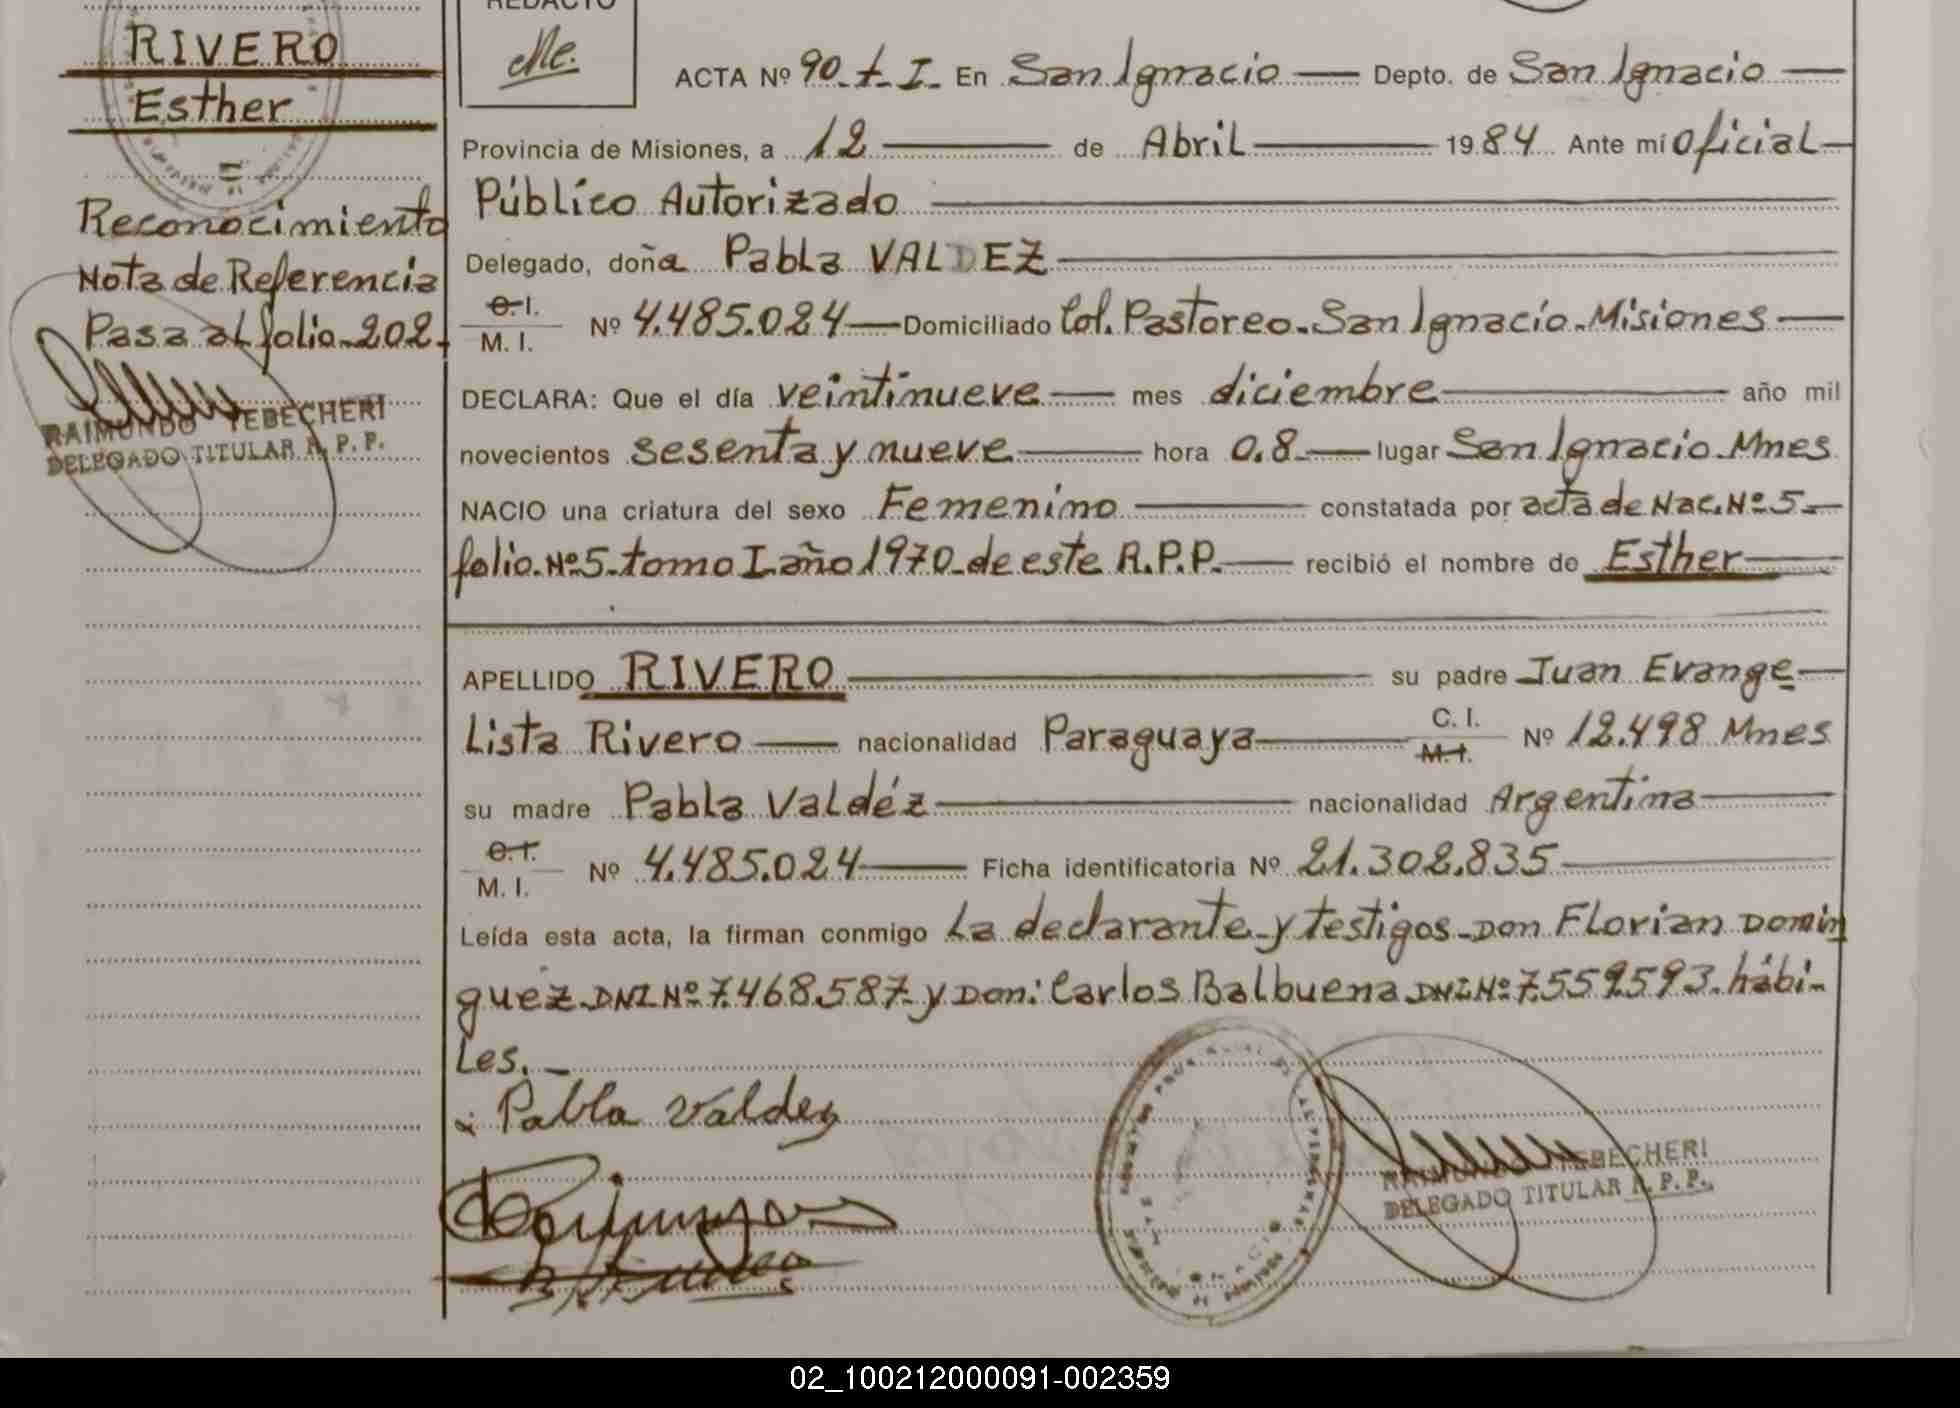 RIVERO
Esther
Reconocimiento
Nota de Referencia
Pasa al folio-202-
RAIMUNDO TEBECHERI
DELEGADO TITULAR R. P. P.
REDACTO
ACTA Nº 90-t-I- En San Ignacio Depto. de San Ignacio
Provincia de Misiones, a 12 de Abril 1984 Ante mí Oficial
Público Autorizado
Delegado, doña Pabla VALDEZ
C. I.
M. I. Nº 4.485.024 Domiciliado Col. Pastoreo-San Ignacio-Misiones
DECLARA: Que el día veintinueve mes diciembre año mil
novecientos sesenta y nueve hora 0.8 lugar San Ignacio-Mnes
NACIO una criatura del sexo Femenino constatada por acta de Nac. Nº 5-
folio-Nº5-tomo I-año 1970-de este R.P.P. recibió el nombre de Esther
APELLIDO RIVERO su padre Juan Evange-
lista Rivero nacionalidad Paraguaya C. I. M. I. Nº 12.498 Mnes
su madre Pabla Valdéz nacionalidad Argentina
C. I.
M. I. Nº 4.485.024 Ficha identificatoria Nº 21.302.835
Leída esta acta, la firman conmigo la declarante-y testigos-Don Florian Domin
guez-DNI Nº 7.468.587-y Don: Carlos Balbuena DNI Nº 7.559.593-hábi-
les.-
Pabla Valdez
RAIMUNDO TEBECHERI
DELEGADO TITULAR R. P. P.
02_100212000091-002359